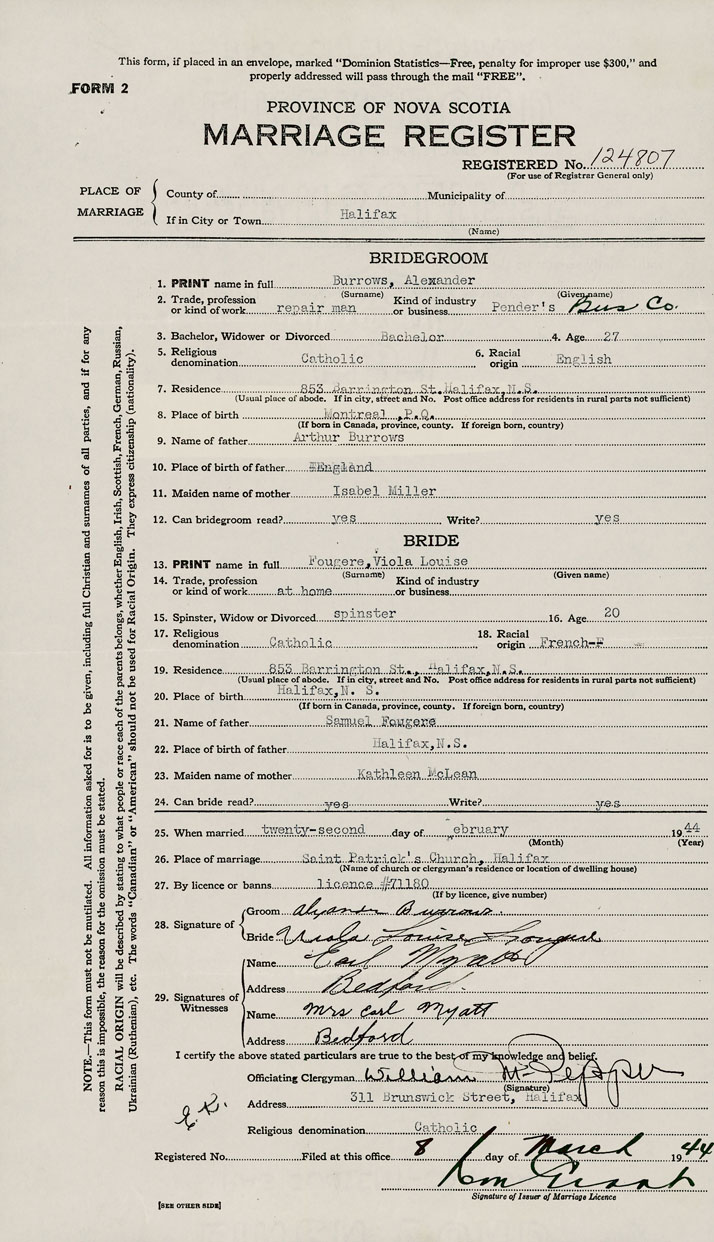 This form, if placed in an envelope, marked "Dominion Statistics—Free, penalty for improper use $300," and
properly addressed will pass through the mail "FREE".
FORM 2
PROVINCE OF NOVA SCOTIA
MARRIAGE REGISTER
REGISTERED No. 124807
(For use of Registrar General only)
PLACE OF MARRIAGE
County of Municipality of
If in City or Town Halifax
(Name)
BRIDEGROOM
1. PRINT name in full Burrows, Alexander
(Surname) (Given name)
2. Trade, profession or kind of work repair man Kind of industry or business Pender's Bus Co.
3. Bachelor, Widower or Divorced Bachelor 4. Age 27
5. Religious denomination Catholic 6. Racial origin English
7. Residence 853 Barrington St. Halifax, N.S.
(Usual place of abode. If in city, street and No. Post office address for residents in rural parts not sufficient)
8. Place of birth Montreal, P.Q.
(If born in Canada, province, county. If foreign born, country)
9. Name of father Arthur Burrows
10. Place of birth of father England
11. Maiden name of mother Isabel Miller
12. Can bridegroom read? yes Write? yes
BRIDE
13. PRINT name in full Fougere, Viola Louise
(Surname) (Given name)
14. Trade, profession or kind of work at home Kind of industry or business
15. Spinster, Widow or Divorced spinster 16. Age 20
17. Religious denomination Catholic 18. Racial origin French-F
19. Residence 853 Barrington St., Halifax, N.S.
(Usual place of abode. If in city, street and No. Post office address for residents in rural parts not sufficient)
20. Place of birth Halifax, N. S.
(If born in Canada, province, county. If foreign born, country)
21. Name of father Samuel Fougere
22. Place of birth of father Halifax, N.S.
23. Maiden name of mother Kathleen McLean
24. Can bride read? yes Write? yes
25. When married twenty-second day of ebruary 1944
(Month) (Year)
26. Place of marriage Saint Patrick's Church, Halifax
(Name of church or clergyman's residence or location of dwelling house)
27. By licence or banns licence #71180
(If by licence, give number)
28. Signature of
Groom Alexander Burrows
Bride Viola Louise Fougere
29. Signatures of Witnesses
Name Earl Myatt
Address Bedford
Name Mrs Earl Myatt
Address Bedford
I certify the above stated particulars are true to the best of my knowledge and belief.
Officiating Clergyman William
(Signature)
Address 311 Brunswick Street, Halifax
Religious denomination Catholic
Registered No. Filed at this office 8 day of March 1944
Signature of Issuer of Marriage Licence
[SEE OTHER SIDE]
NOTE.—This form must not be mutilated. All information asked for is to be given, including full Christian and surnames of all parties, and if for any
reason this is impossible, the reason for the omission must be stated.
RACIAL ORIGIN will be described by stating to what people or race each of the parents belongs, whether English, Irish, Scottish, French, German, Russian,
Ukrainian (Ruthenian), etc. The words "Canadian" or "American" should not be used for Racial Origin. They express citizenship (nationality).